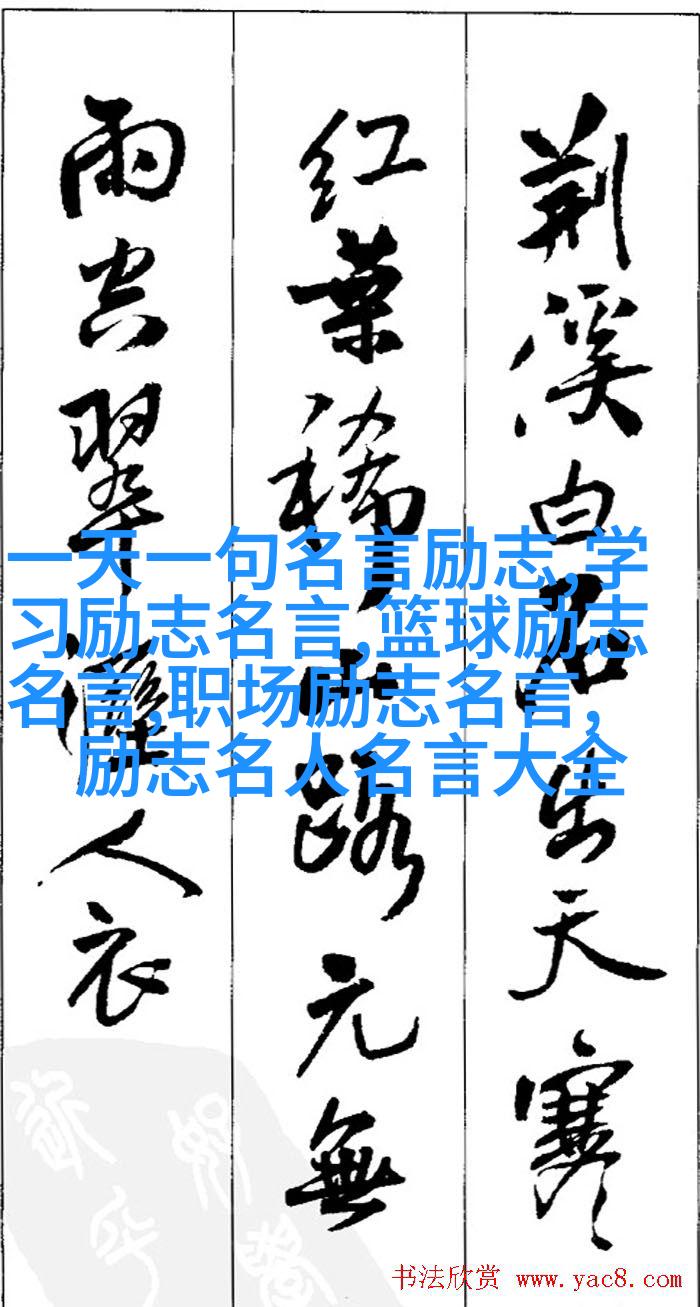 荆溪白石出天寒
红葉稀山路元無
雨空翠濕人衣
一天一句名言励志,学
习励志名言,篮球励志
名言,职场励志名言,
励志名人名言大全
书法欣赏 www.yac8.com